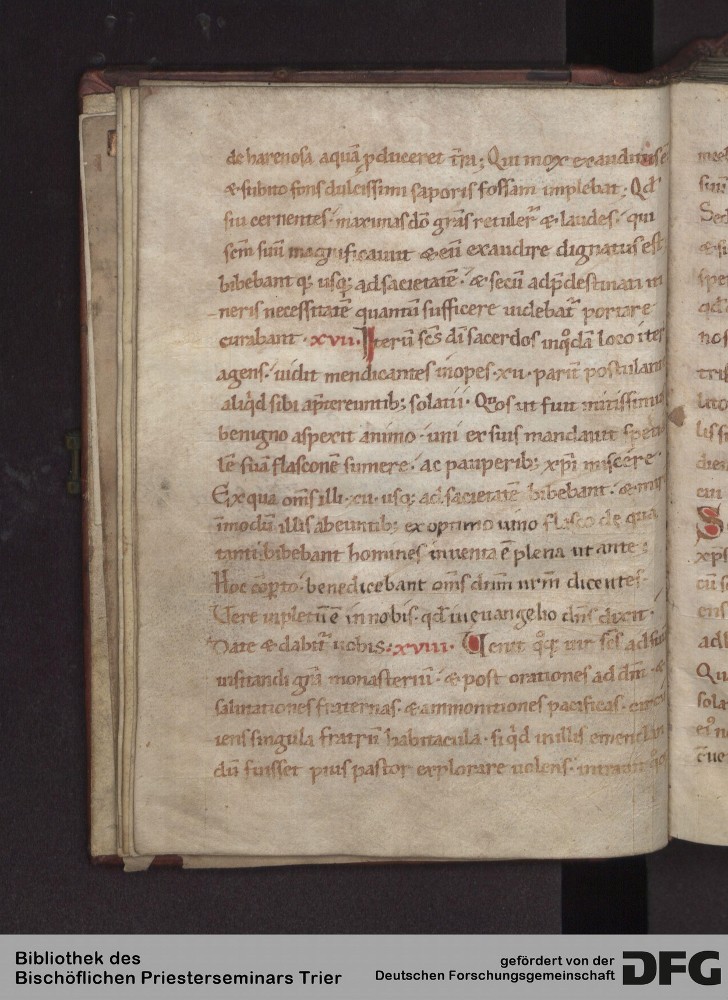 de harenosa aquā ꝓduceret t̄ra; Qui mox exauditus ē
& subito fons dulcissimi saporis fossam implebat; Qd̄
sui cernentes. maximas dō grās retuler̄ & laudes. qui
scm̄ suū magnificauit & eū exaudire dignatus est
bibebant q; usq; ad sacietatē. & secū ad p̄destinati iti
neris necessitatē quantū sufficere uidebat̄ portare
curabant. xvii. Iterū scs̄ dī sacerdos in qͦdā loco iter
agens. uidit mendicantes inopes. xii. parū postulare
aliqͥd sibi a p̄tereuntib; solatii. Qͦs ut fuit mitissimus
benigno aspexit animo. uni ex suis mandauit
lē suā flasconē sumere. ac pauperib; xp̄i miscere.
Ex qua om̄s illi. xii. usq; ad sacietatē bibebant. &
in modū illis abeuntib; ex optimo uino flasco de qua
tanti bibebant homines inuenta ē plena ut ante;
Hoc cōꝑto. benedicebant om̄s dnm̄ nrm̄ dicentes.
Vere inpletū ē in nobis. qd̄ in euangelio dns̄ dixit.
Date & dabit̄ uobis; xviii. Venit qͦq; uir scs̄ ad
uisitandi grā monasteriū. & post orationes ad dm̄. &
salutationes fraternas. & ammonitiones pacificas.
iens singula fratrū habitacula. si qͥd in illis emendan
dū fuisset pius pastor explorare uolens. intrauit qͦq;
Bibliothek des
Bischöflichen Priesterseminars Trier
gefördert von der
Deutschen Forschungsgemeinschaft
DFG